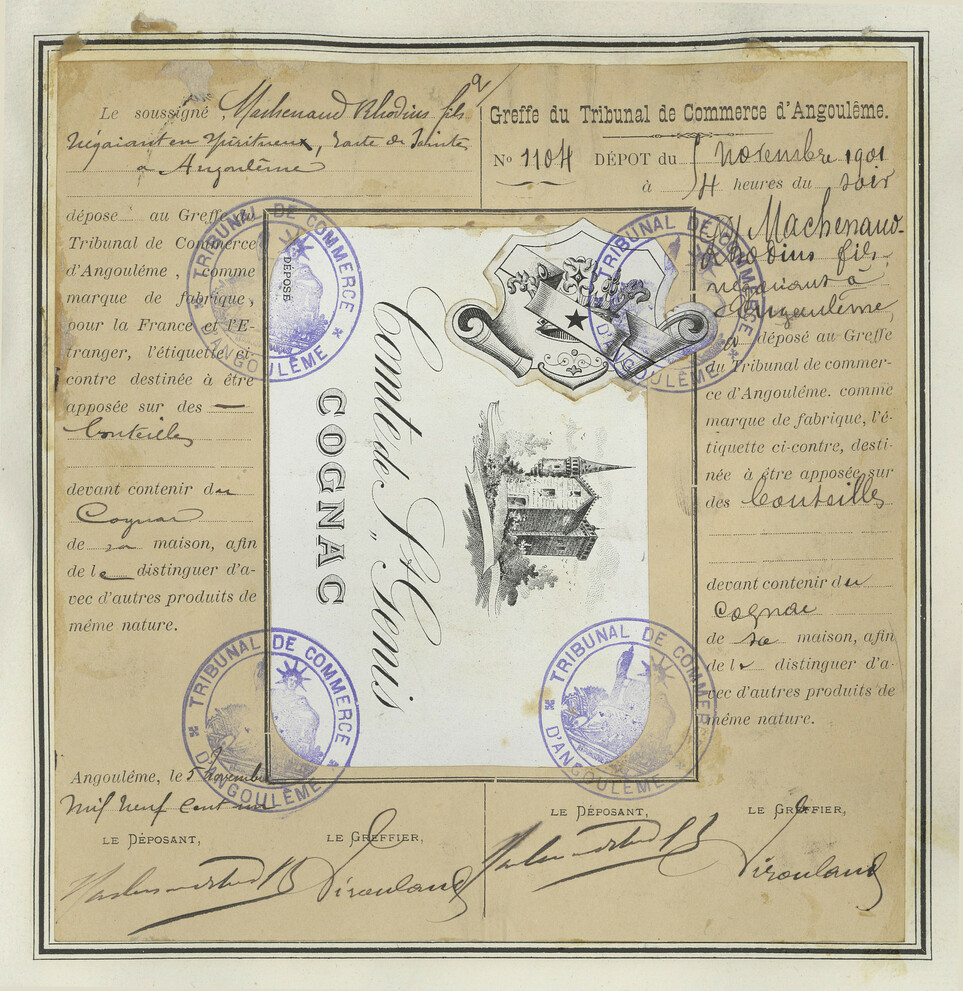 Le soussigné, Machenaud Rhodius fils
Négociant en spiritueux, route de Saintes
à Angoulême
dépose au Greffe du
Tribunal de Commerce
d'Angoulême, comme
marque de fabrique,
pour la France et l'E-
tranger, l'étiquette ci-
contre destinée à être
apposée sur des
bouteilles
devant contenir du
Cognac
de sa maison, afin
de le distinguer d'a-
vec d'autres produits de
même nature.
Angoulême, le 5 Novembre
Mil neuf cent un
LE DÉPOSANT,
LE GREFFIER,
Greffe du Tribunal de Commerce d'Angoulême.
No 1104 DÉPOT du 5 Novembre 1901
à 4 heures du soir
Machenaud-
Rhodius fils,
négociant à
Angoulême,
a déposé au Greffe
du Tribunal de commer-
ce d'Angoulême. comme
marque de fabrique, l'é-
tiquette ci-contre, desti-
née à être apposée sur
des bouteilles
devant contenir du
Cognac
de sa maison, afin
de le distinguer d'a-
vec d'autres produits de
même nature.
LE DÉPOSANT,
LE GREFFIER,
DÉPOSÉ
Comte de St. Genis
COGNAC
TRIBUNAL DE COMMERCE
D'ANGOULÊME
TRIBUNAL DE COMMERCE
D'ANGOULÊME
TRIBUNAL DE COMMERCE
D'ANGOULÊME
TRIBUNAL DE COMMERCE
D'ANGOULÊME